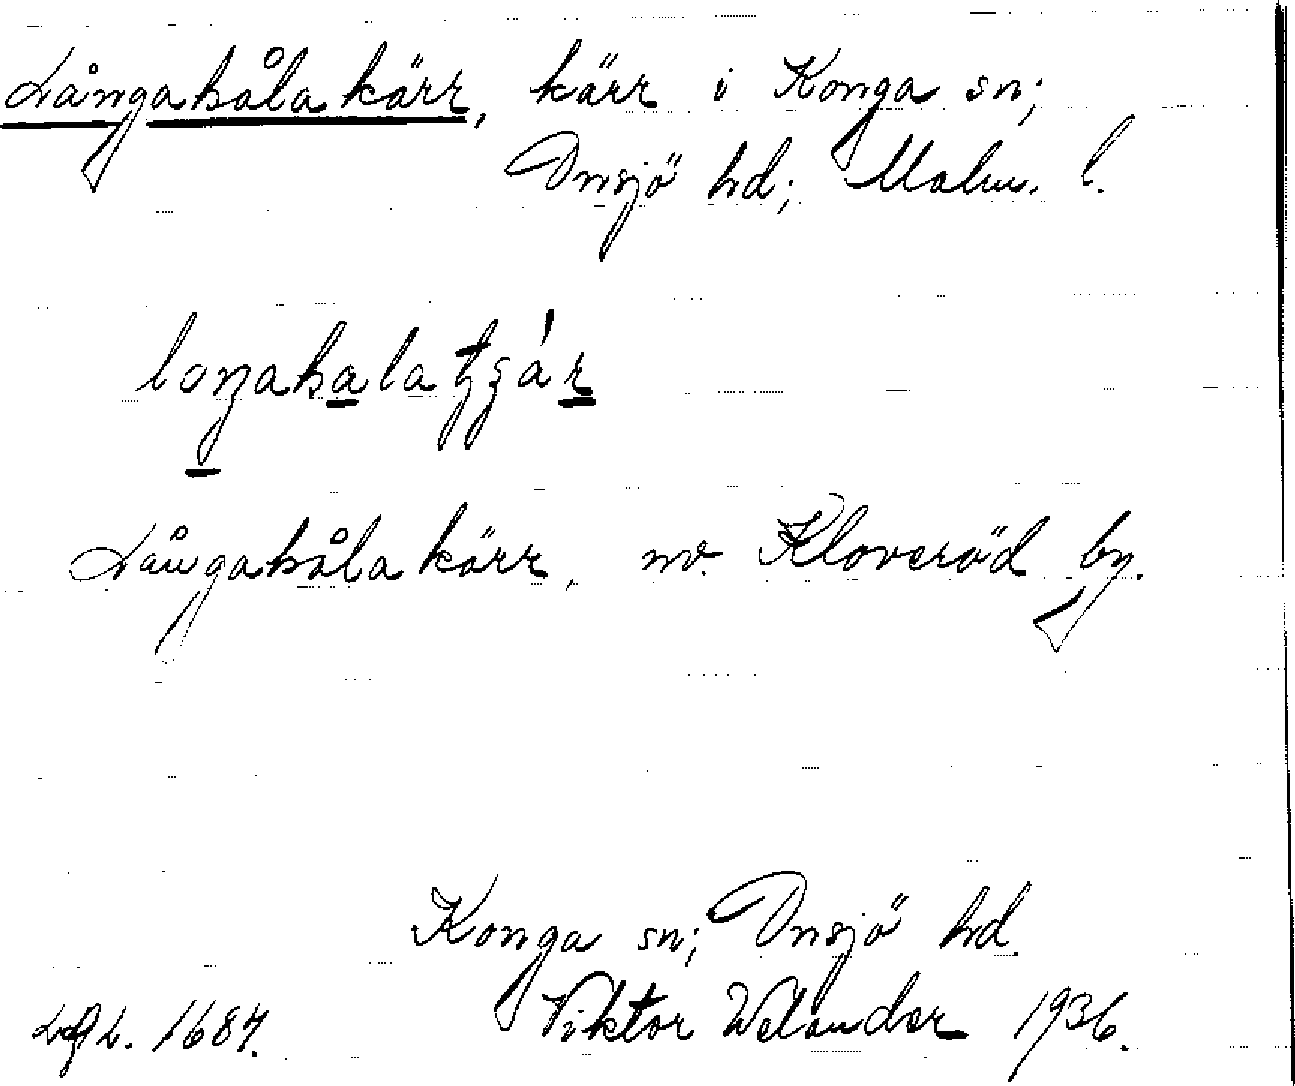 Långahålakärr, kärr i Konga sn;
Onsjö hd; Malm. l.
Långahålakärr, nv. Kloveröd by.
Konga sn; Onsjö hd.
Viktor Welander 1936.
1684.